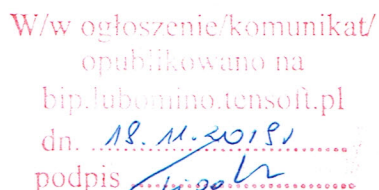 W/w ogłoszenie/komunikat/
opublikowano na
bip.lubomino.tensoft.pl
dn. 18.11.2019r
podpis